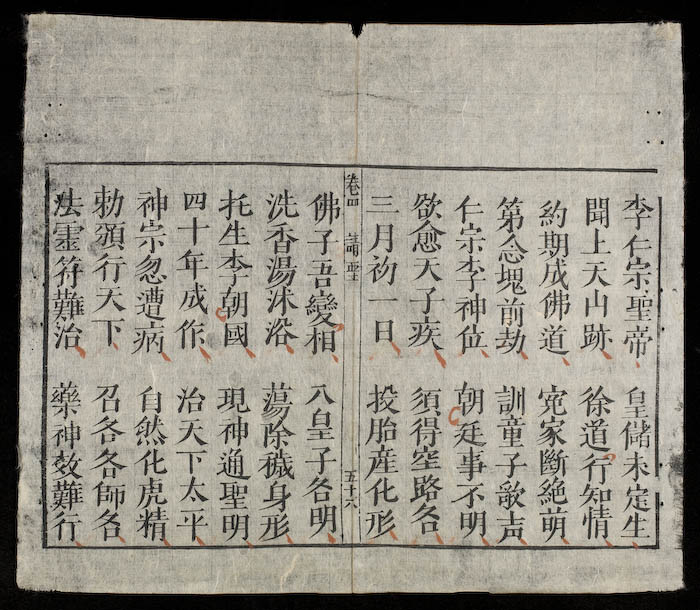 李仁宗聖帝 皇儲未定生
聞上天山跡 徐道行知情
約期成佛道 寃家斷絶萌
第念塊前劫 訓童子歌声
仁宗李神位 朝廷事不明
欲愈天子疾 須得空路各
三月初一日 投胎産化形
卷四 請聖 五十六
佛子吾變相 八皇子各明
洗香湯沐浴 蕩除穢身形
托生李朝國 現神通聖明
四十年成作 治天下太平
神宗忽遭病 自然化虎精
勅頒行天下 召各各師各
法霊符難治 藥神效難行